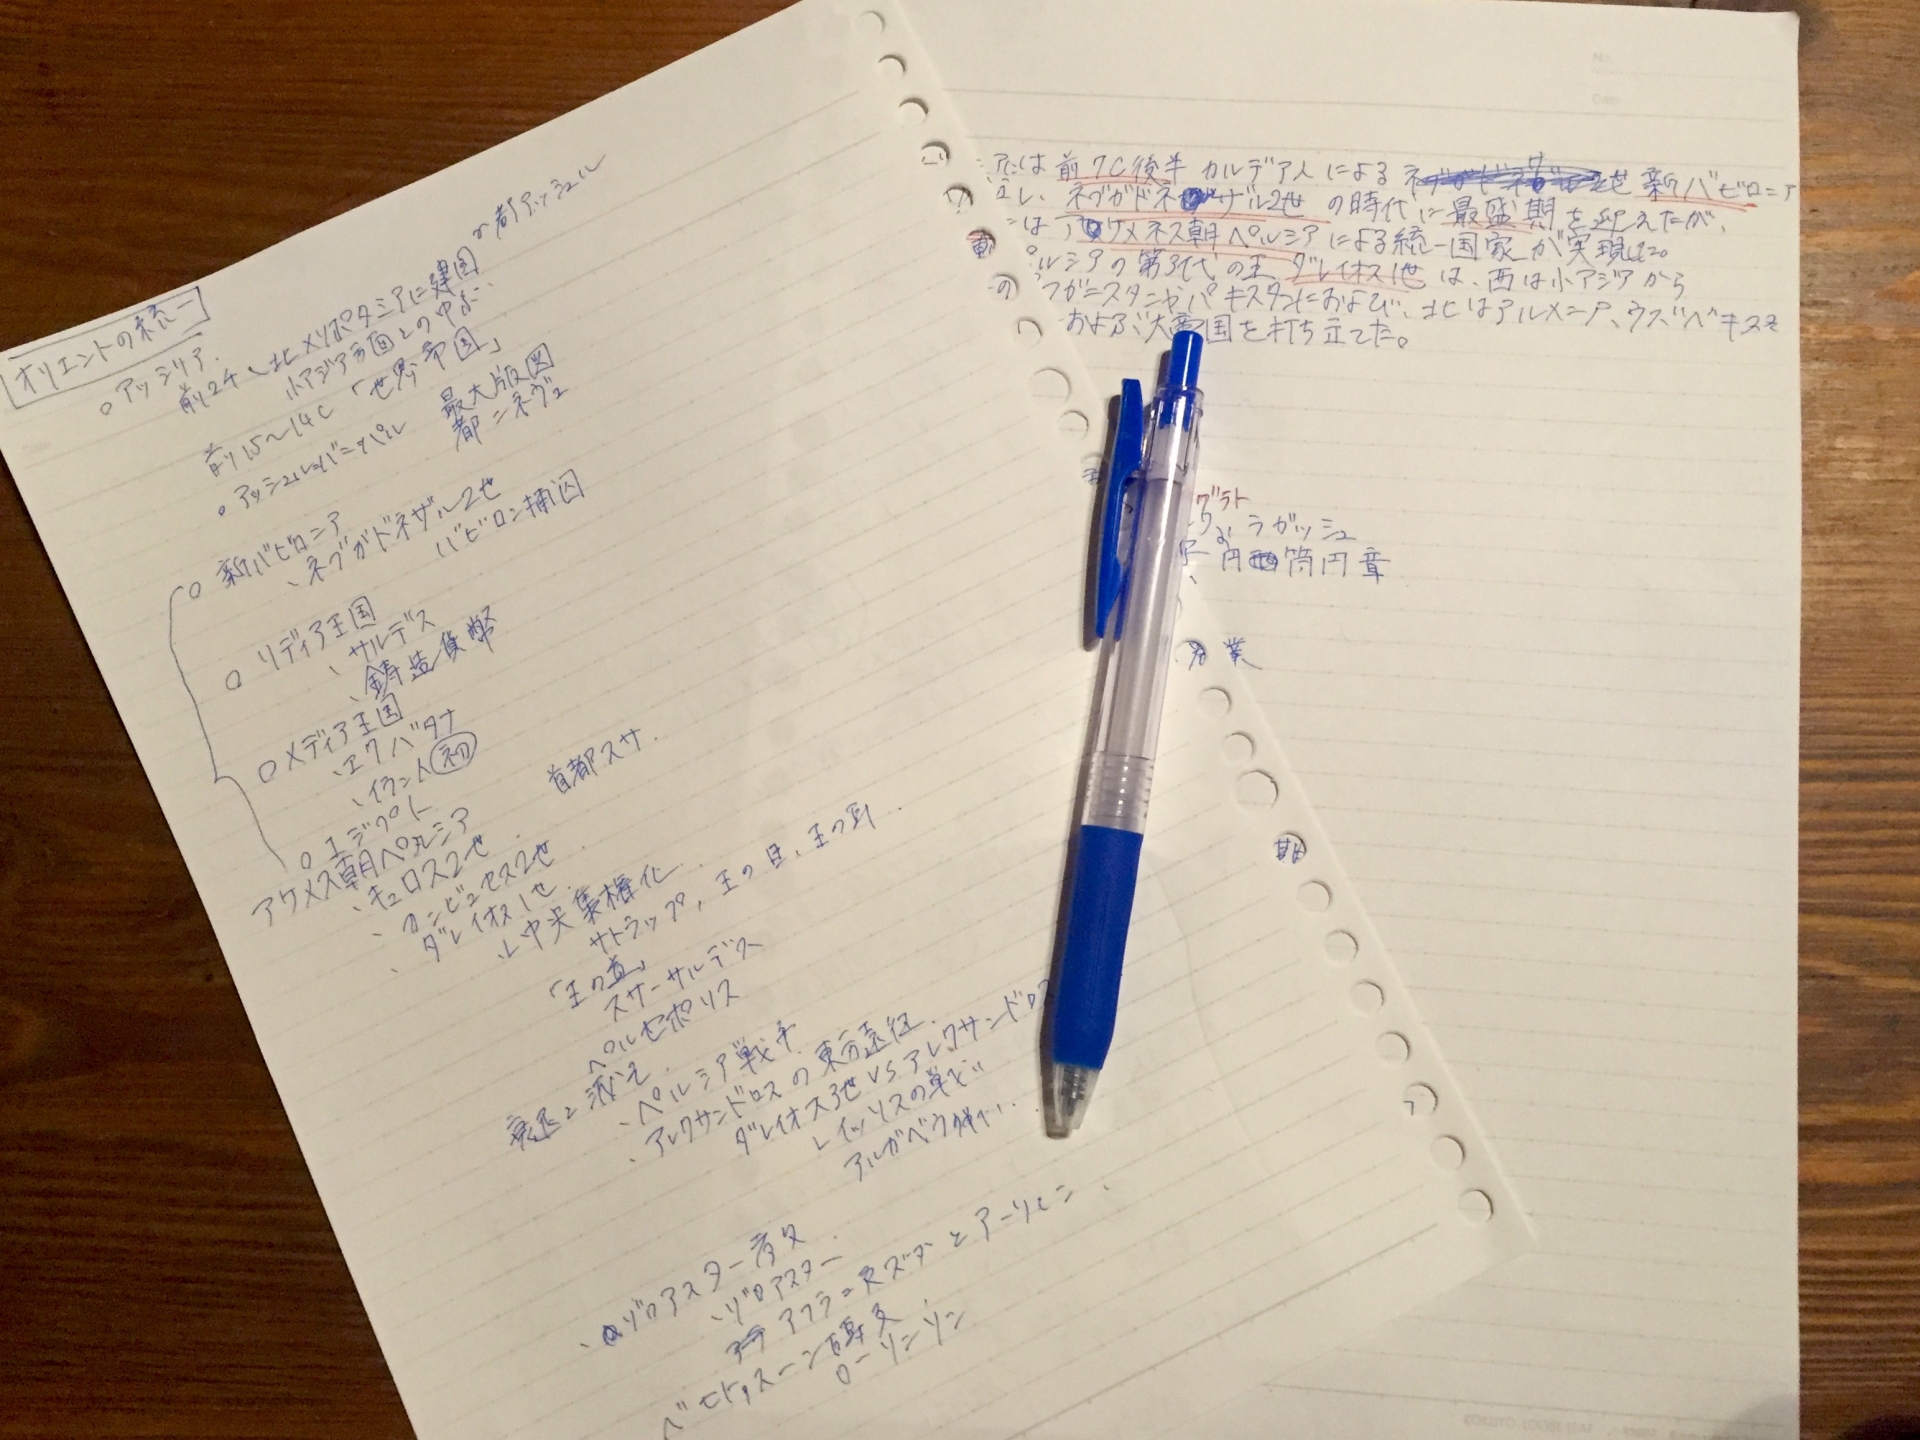 オリエントの統一
○アッシリア
前2千、北メソポタミアに建国 都アッシュル
小アジア方面との中
前15〜14C 「世界帝国」
○アッシュル=バニパル 最大版図
都=ネヴェ
○新バビロニア
、ネブガドネザル2世
バビロン捕囚
○リディア王国
、サルデス
、鋳造貨幣
○メディア王国
、エクバタナ
、イラン人 初
○エジプト
アケメス朝ペルシア 首都スサ
、キュロス2世
、カンビュセス2世
、ダレイオス1世
中央集権化
サトラップ、王の目、王の耳
「王の道」
スサーサルデス
ペルセポリス
衰退と滅亡
、ペルシア戦争
、アレクサンドロスの東方遠征
ダレイオス3世 VS アレクサンドロス
イッソスの戦い
アルガベラ戦い
、ゾロアスター教
、ゾロアスター
アフラ=マズダとアーリマン
ベヒトゥスーン碑文
ローリンソン
は前7C後半 カルデア人による 新バビロニア
し、ネブガドネザル2世 の時代に最盛期を迎えたが、
は アケメネス朝ペルシアによる統一国家が実現した。
ルシアの第3代の王 ダレイオス1世 は、西は小アジアから
の フガニスタンやパキスタンにおよび、北はアルメニア、ウズベキスタ
および大帝国を打ち立てた。
グラト
ラガッシュ
円筒円章
業
期